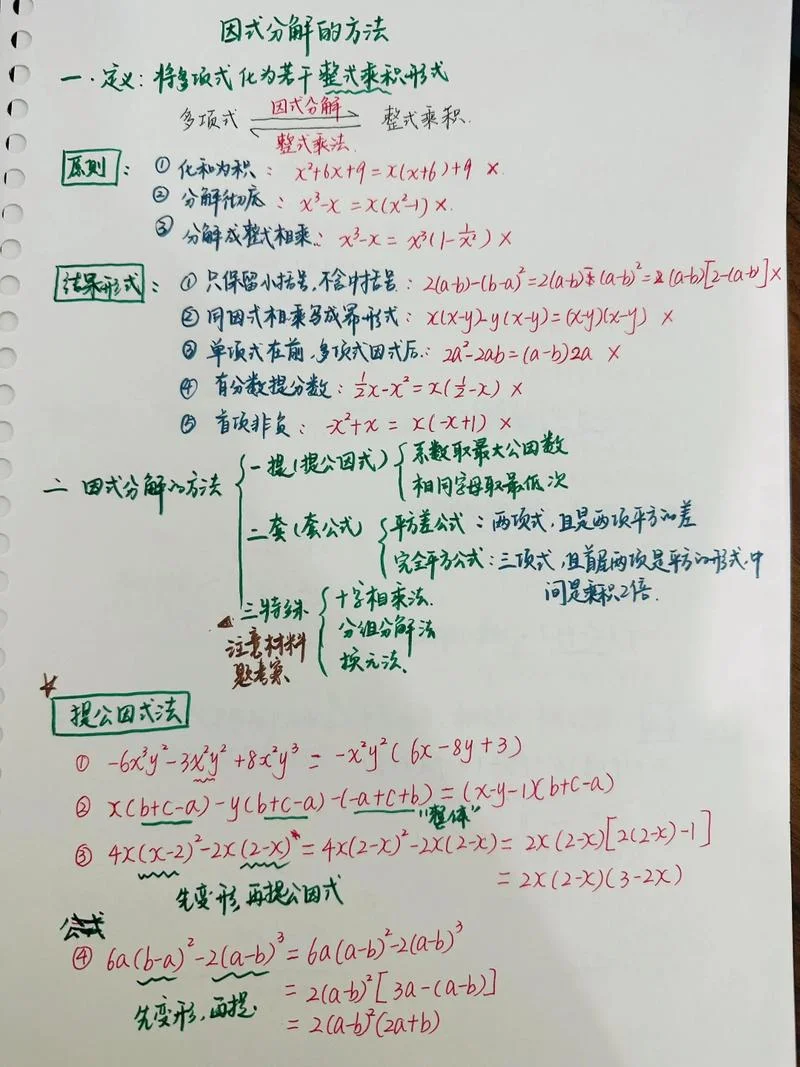 因式分解的方法
一.定义:将多项式化为若干整式乘积形式
因式分解
多项式 ⇌ 整式乘积.
整式乘法.
原则:① 化和为积: x²+6x+9=x(x+6)+9 ×
② 分解彻底: x³-x=x(x²-1) ×.
③ 分解成整式相乘: x³-x=x³(1-1/x²) ×
结果形式:① 只保留小括号,不含中括号: 2(a-b)-(b-a)²=2(a-b)-(a-b)²=(a-b)[2-(a-b)] ×
② 同因式相乘写成幂形式: x(x-y)-y(x-y)=(x-y)(x-y) ×
③ 单项式在前,多项式因式后: 2a²-2ab=(a-b)2a ×
④ 有分数提分数: 1/2x-x²=x(1/2-x) ×
⑤ 首项非负: -x²+x=x(-x+1) ×
二 因式分解的方法
一提(提公因式)
系数取最大公因数
相同字母取最低次
二套(套公式)
平方差公式:两项式,且是两项平方的差
完全平方公式:三项式,且首尾两项是平方的形式.中
间是乘积2倍.
三特殊
十字相乘法.
分组分解法
换元法.
注意材料
题考察
提公因式法
① -6x³y²-3x²y²+8x²y³=-x²y²(6x-8y+3)
② x(b+c-a)-y(b+c-a)-(-a+c+b)=(x-y-1)(b+c-a)
"整体"
③ 4x(x-2)²-2x(2-x)*=4x(2-x)²-2x(2-x)=2x(2-x)[2(2-x)-1]
=2x(2-x)(3-2x)
先变形,再提公因式
④ 6a(b-a)²-2(a-b)³=6a(a-b)²-2(a-b)³
=2(a-b)²[3a-(a-b)]
先变形,再提.
=2(a-b)²(2a+b)